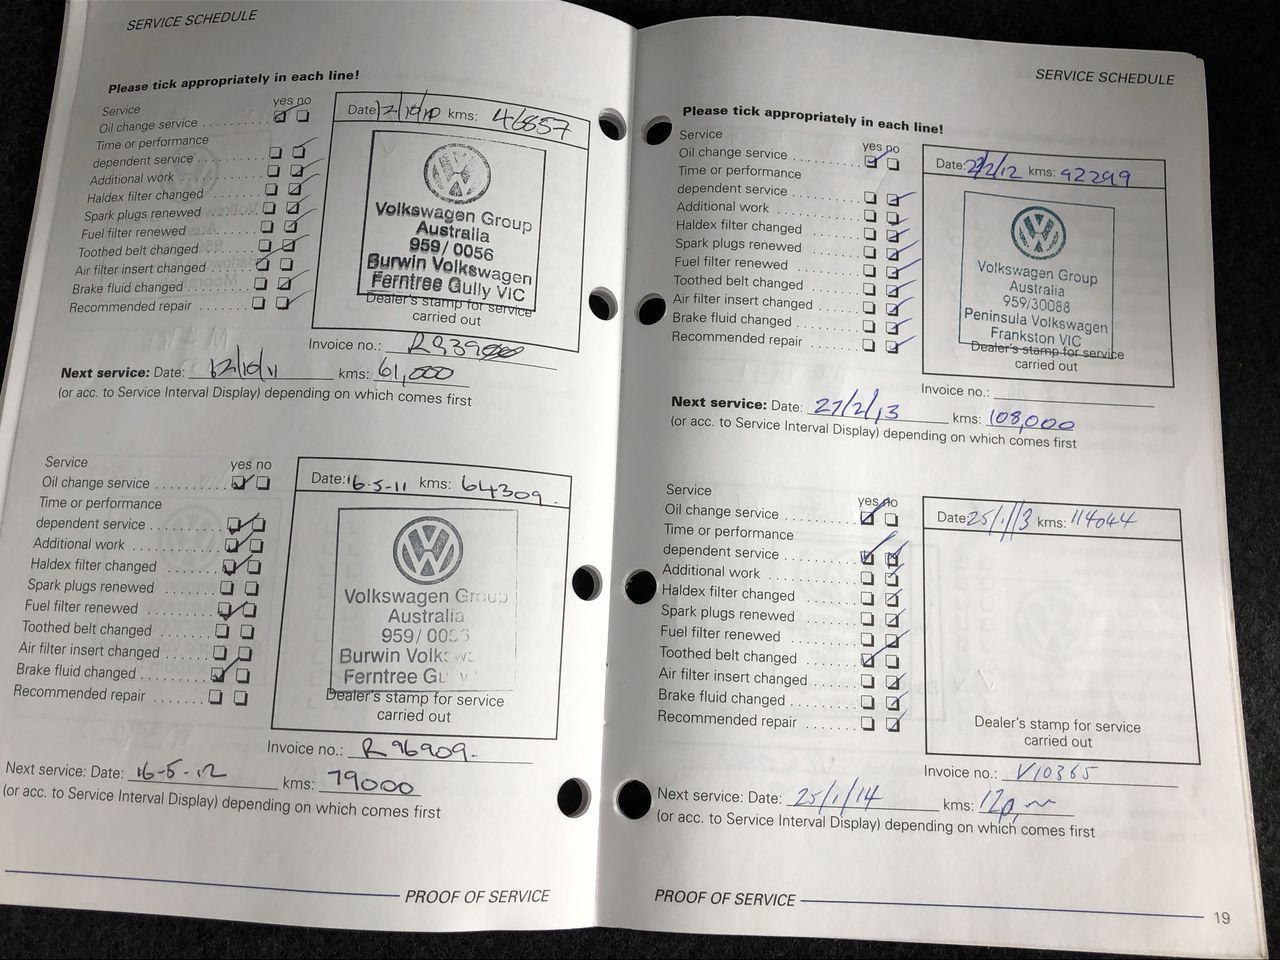 SERVICE SCHEDULE
Please tick appropriately in each line!
Service
yes no
Oil change service
Time or performance
dependent service
Additional work
Haldex filter changed
Spark plugs renewed
Fuel filter renewed
Toothed belt changed
Air filter insert changed
Brake fluid changed
Recommended repair
Date: 12/10/10 kms: 46857
Volkswagen Group
Australia
959/ 0056
Burwin Volkswagen
Ferntree Gully VIC
Dealer's stamp for service
carried out
Invoice no.:
Next service: Date: 12/10/11 kms: 61,000
(or acc. to Service Interval Display) depending on which comes first
Service
yes no
Oil change service
Time or performance
dependent service
Additional work
Haldex filter changed
Spark plugs renewed
Fuel filter renewed
Toothed belt changed
Air filter insert changed
Brake fluid changed
Recommended repair
Date: 16-5-11 kms: 64309
Volkswagen Group
Australia
959/
Burwin
Ferntree
Dealer's stamp for service
carried out
Invoice no.: R96909
Next service: Date: 16-5-12 kms: 79000
(or acc. to Service Interval Display) depending on which comes first
PROOF OF SERVICE
SERVICE SCHEDULE
Please tick appropriately in each line!
Service
yes no
Oil change service
Time or performance
dependent service
Additional work
Haldex filter changed
Spark plugs renewed
Fuel filter renewed
Toothed belt changed
Air filter insert changed
Brake fluid changed
Recommended repair
Date: kms: 92299
Volkswagen Group
Australia
959/30088
Peninsula Volkswagen
Frankston VIC
Dealer's stamp for service
carried out
Invoice no.:
Next service: Date: 27/2/13 kms: 108,000
(or acc. to Service Interval Display) depending on which comes first
Service
yes no
Oil change service
Time or performance
dependent service
Additional work
Haldex filter changed
Spark plugs renewed
Fuel filter renewed
Toothed belt changed
Air filter insert changed
Brake fluid changed
Recommended repair
Date: 25/1/13 kms: 114044
Dealer's stamp for service
carried out
Invoice no.: V10365
Next service: Date: 25/1/14 kms:
(or acc. to Service Interval Display) depending on which comes first
PROOF OF SERVICE
19